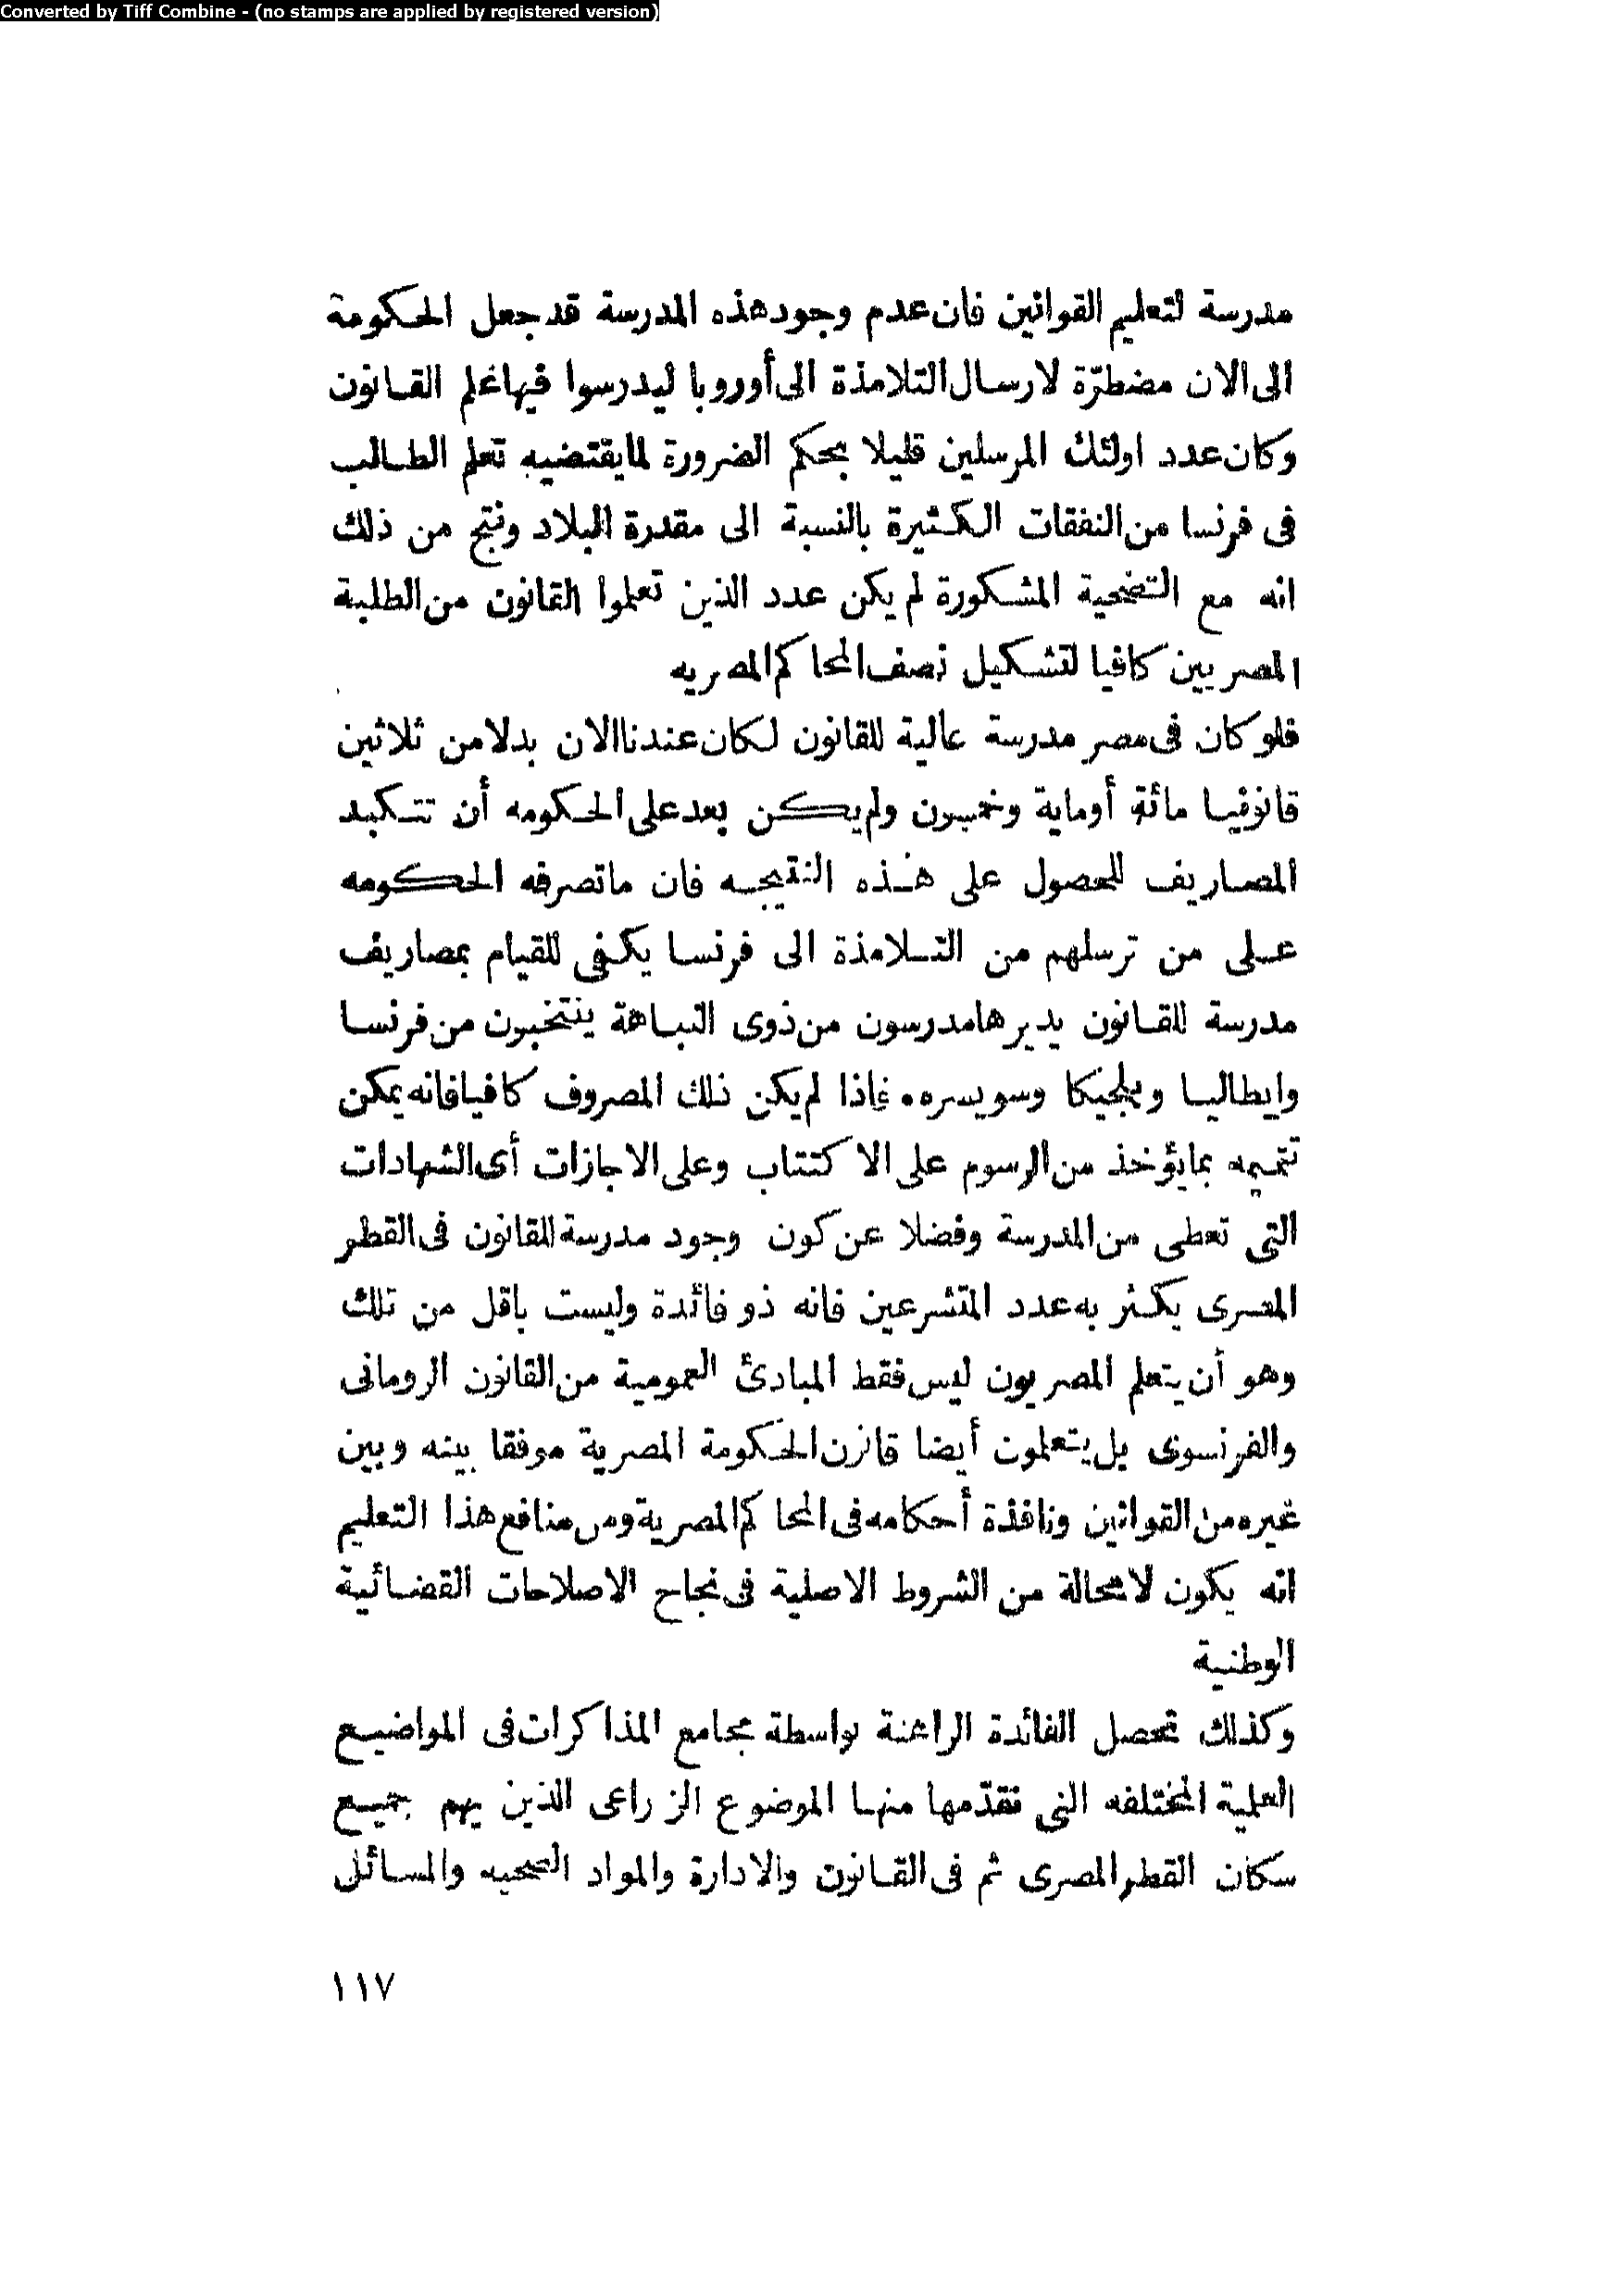 Converted by Tiff Combine - (no stamps are applied by registered version)
مدرسة لتعليم القوانين فان عدم وجود هذه المدرسة قد جعل الحكومة
الى الان مضطرّة لارسال التلامذة الى أوروبا ليدرسوا فيها علم القانون
وكان عدد اولئك المرسلين قليلا بحكم الضرورة لما يقتضيه تعلم الطالب
فى فرنسا من النفقات الكثيرة بالنسبة الى مقدرة البلاد ونتج من ذلك
انه مع التضحية المشكورة لم يكن عدد الذين تعلموا القانون من الطلبة
المصريين كافيا لتشكيل نصف المحاكم المصريه
فلو كان فى مصر مدرسة عالية للقانون لكان عندنا الان بدلا من ثلاثين
قانونيا مائة أوماية وخمسون ولم يكن بعد على الحكومه أن تتكبد
المصاريف للحصول على هذه النتيجه فان ماتصرفه الحكومه
على من ترسلهم من التلامذة الى فرنسا يكفى للقيام بمصاريف
مدرسة للقانون يديرها مدرسون من ذوى النباهة ينتخبون من فرنسا
وايطاليا وبلجيكا وسويسره. فاذا لم يكن ذلك المصروف كافيا فانه يمكن
تتميمه بما يؤخذ من الرسوم على الاكتتاب وعلى الاجازات أى الشهادات
التى تعطى من المدرسة وفضلا عن كون وجود مدرسة للقانون فى القطر
المصرى يكثر به عدد المتشرعين فانه ذو فائدة وليست باقل من تلك
وهو أن يتعلم المصريون ليس فقط المبادئ العمومية من القانون الرومانى
والفرنسوى بل يتعلمون أيضا قانون الحكومة المصرية موفقا بينه وبين
غيره من القوانين ونافذة أحكامه فى المحاكم المصرية ومن منافع هذا التعليم
انه يكون لامحالة من الشروط الاصلية فى نجاح الاصلاحات القضائية
الوطنية
وكذلك تحصل الفائدة الراهنة بواسطة مجامع المذاكرات فى المواضيع
العلمية المختلفه التى نقدّمها منها الموضوع الزراعى الذين يهم جميع
سكان القطر المصرى ثم فى القانون والادارة والمواد الصحيه والمسائل
١١٧